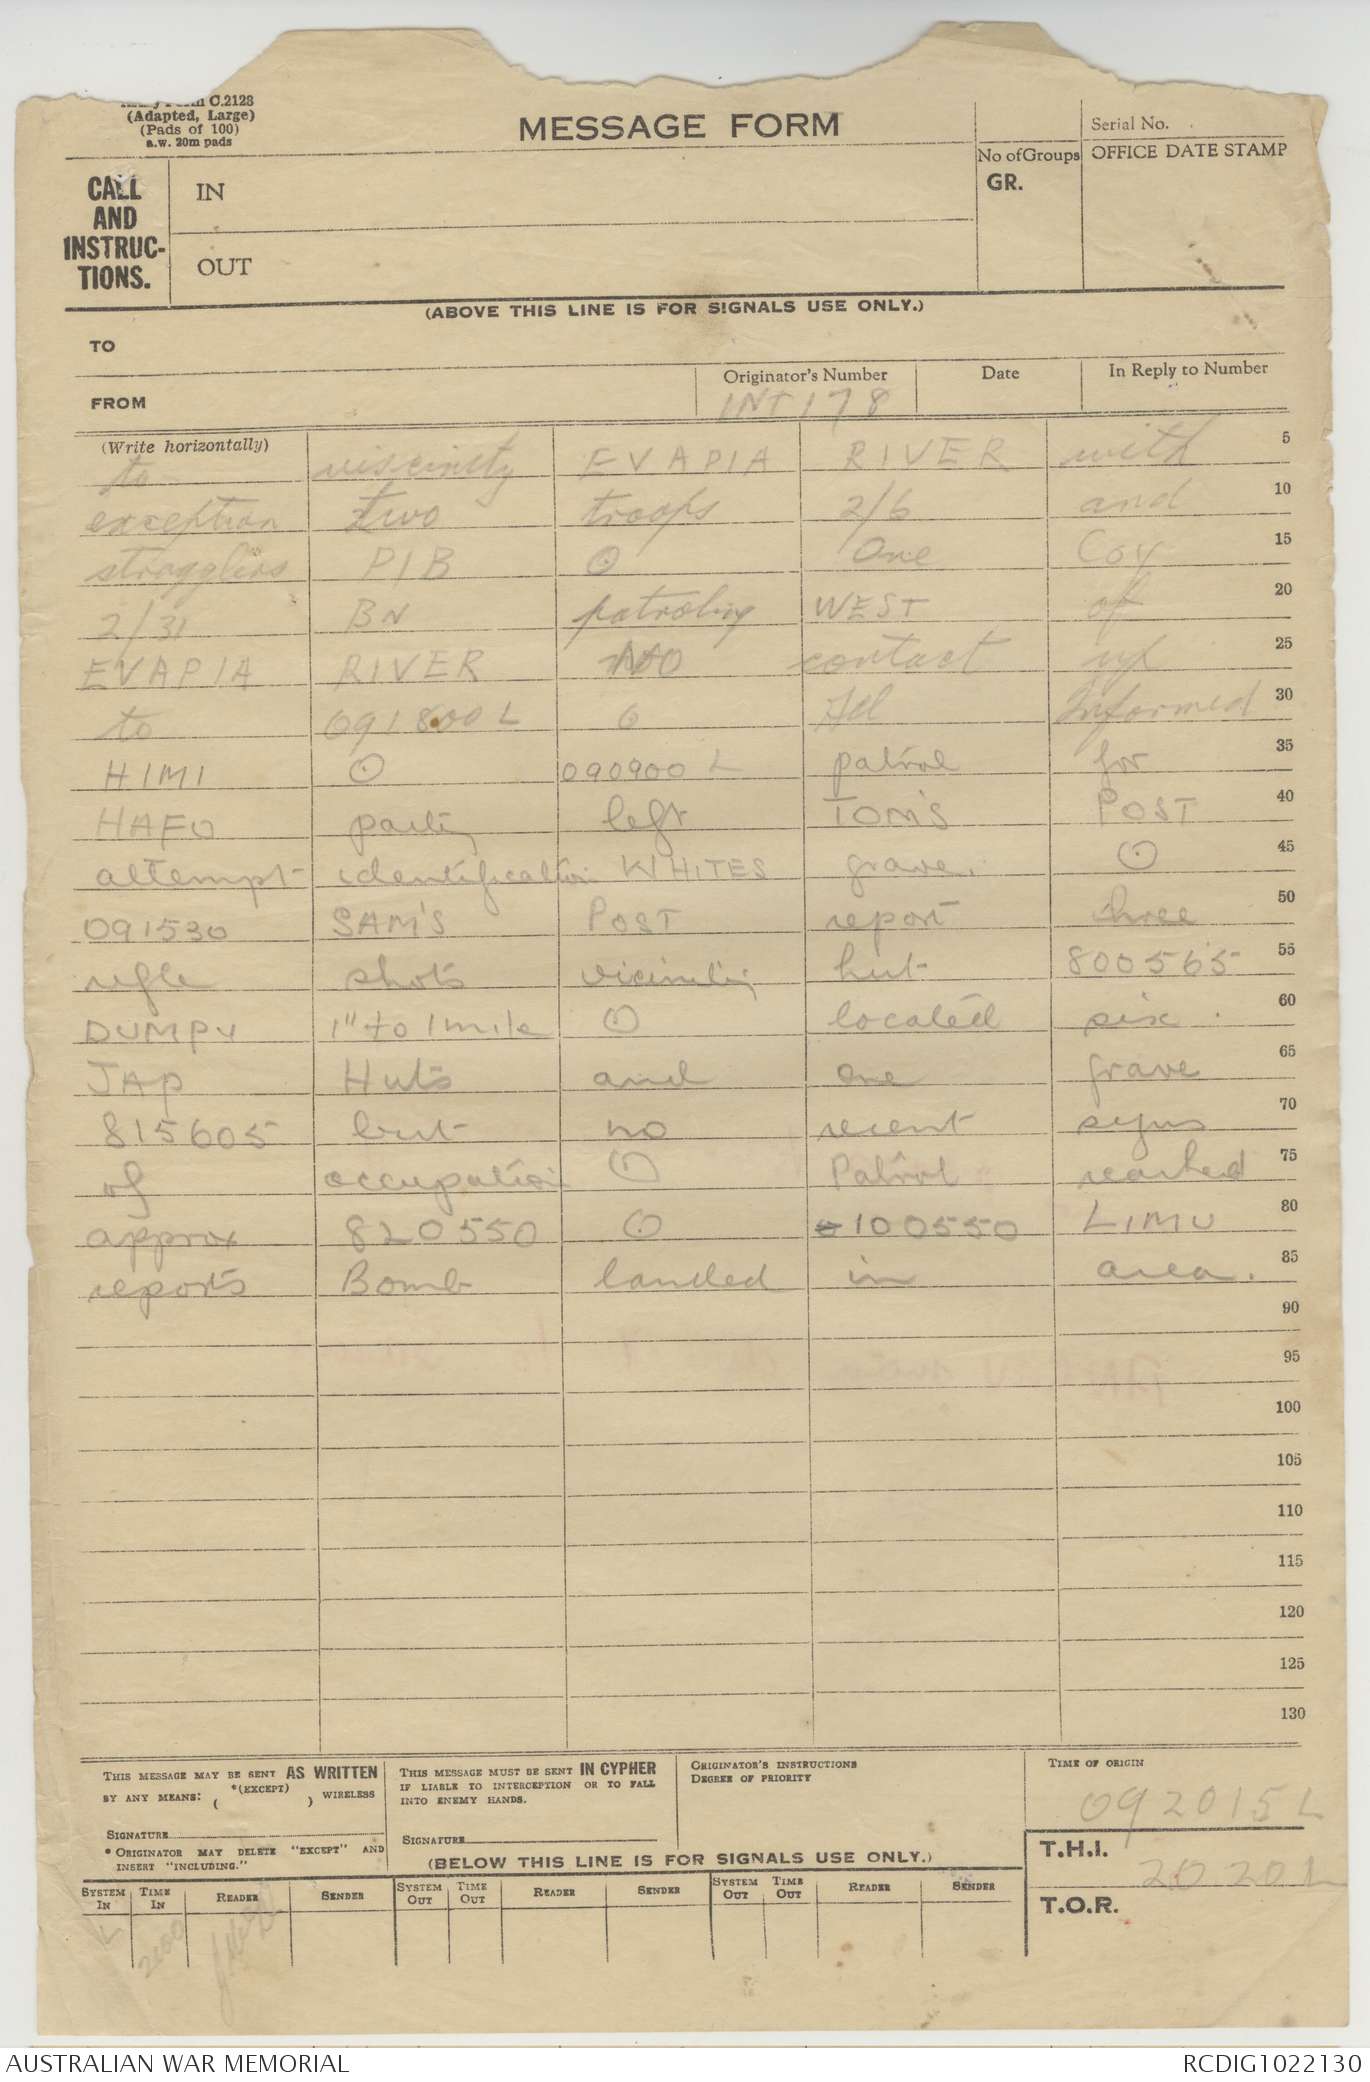 Army Form C.2128
(Adapted, Large)
(Pads of 100)
a.w. 20m pads
MESSAGE FORM
Serial No.
No of Groups
GR.
OFFICE DATE STAMP
CALL
AND
INSTRUC-
TIONS.
IN
OUT
(ABOVE THIS LINE IS FOR SIGNALS USE ONLY.)
TO
FROM
Originator's Number
INT 178
Date
In Reply to Number
(Write horizontally)
to viscinity EVAPIA RIVER with 5
exception two troops 2/6 and 10
stragglers PIB ⊙ One Coy 15
2/31 BN patroling WEST of 20
EVAPIA RIVER NO contact up 25
to 091800 L All Informed 30
HIMI ⊙ 090900 L patrol for 35
HAFU party left TOM'S POST 40
attempt identification WHITES grave. ⊙ 45
091530 SAM'S POST report three 50
rifle shots vicinity hut 800565 55
DUMPU 1" to 1 mile ⊙ located six 60
JAP Huts and one grave 65
815605 but no recent signs 70
of occupation ⊙ Patrol reached 75
approx 820550 ⊙ 100550 LIMU 80
reports Bomb landed in area. 85
90
95
100
105
110
115
120
125
130
THIS MESSAGE MAY BE SENT AS WRITTEN
BY ANY MEANS: ( *(EXCEPT) ) WIRELESS
SIGNATURE
* ORIGINATOR MAY DELETE "EXCEPT" AND
INSERT "INCLUDING."
THIS MESSAGE MUST BE SENT IN CYPHER
IF LIABLE TO INTERCEPTION OR TO FALL
INTO ENEMY HANDS.
SIGNATURE
ORIGINATOR'S INSTRUCTIONS
DEGREE OF PRIORITY
TIME OF ORIGIN
092015 L
(BELOW THIS LINE IS FOR SIGNALS USE ONLY.)
T.H.I.
2020L
T.O.R.
SYSTEM IN TIME IN READER SENDER SYSTEM OUT TIME OUT READER SENDER SYSTEM OUT TIME OUT READER SENDER
AUSTRALIAN WAR MEMORIAL RCDIG1022130